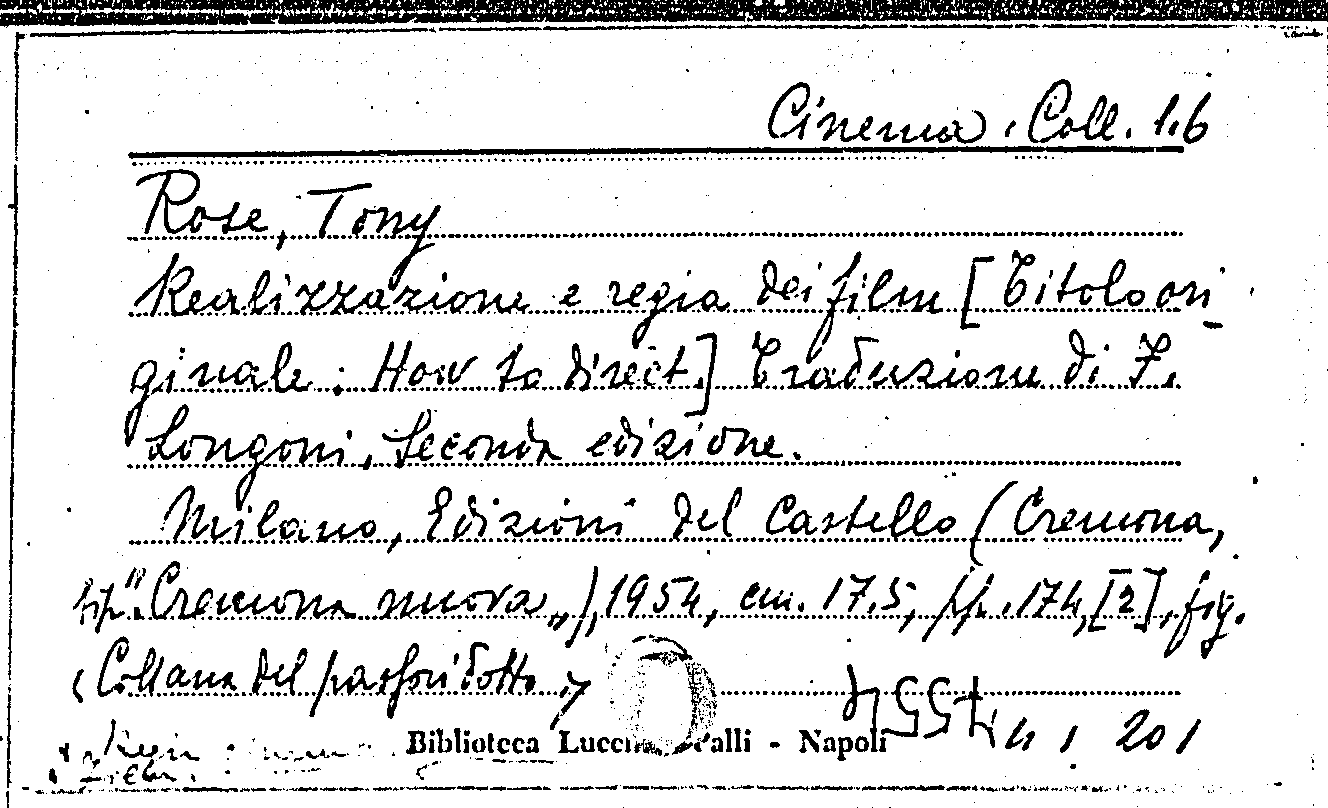 Cinema. Coll. 1.6
Rose, Tony
Realizzazione e regia dei film [Titolo ori-
ginale: How to direct.] Traduzione di F.
Longoni, Seconda edizione.
Milano, Edizioni del Castello (Cremona,
tip. "Cremona nuova„), 1954, cm. 17.5, pp. 174, [2], fig.
(Collana del passoridotto, 7
Biblioteca Lucchesi Palli - Napoli
201